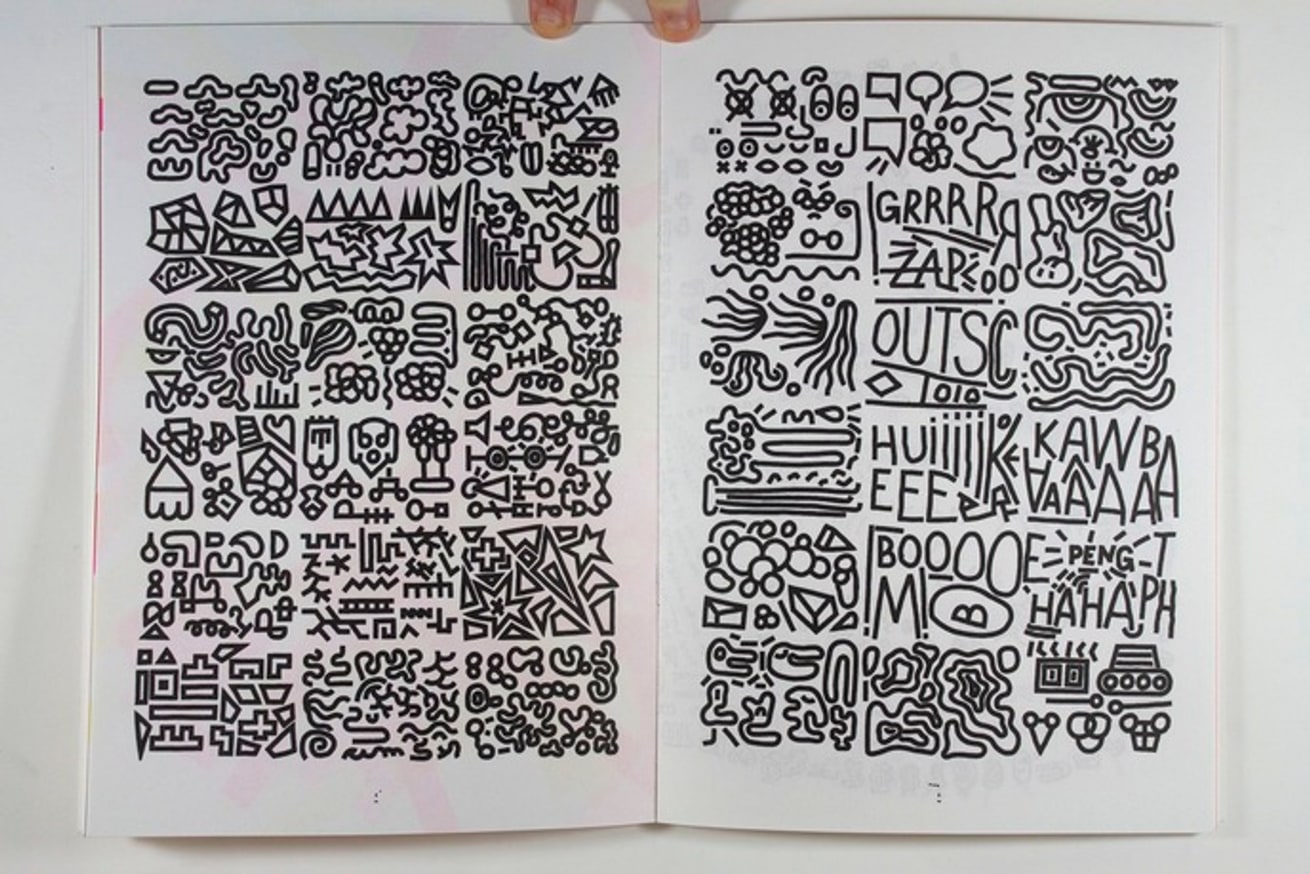 GRRRR
ZAP
OUTSC
HUIIIIII
EEE
KAWBA
VAAAAA
BOOOO
M!
B
E PENG T
HAHA PH